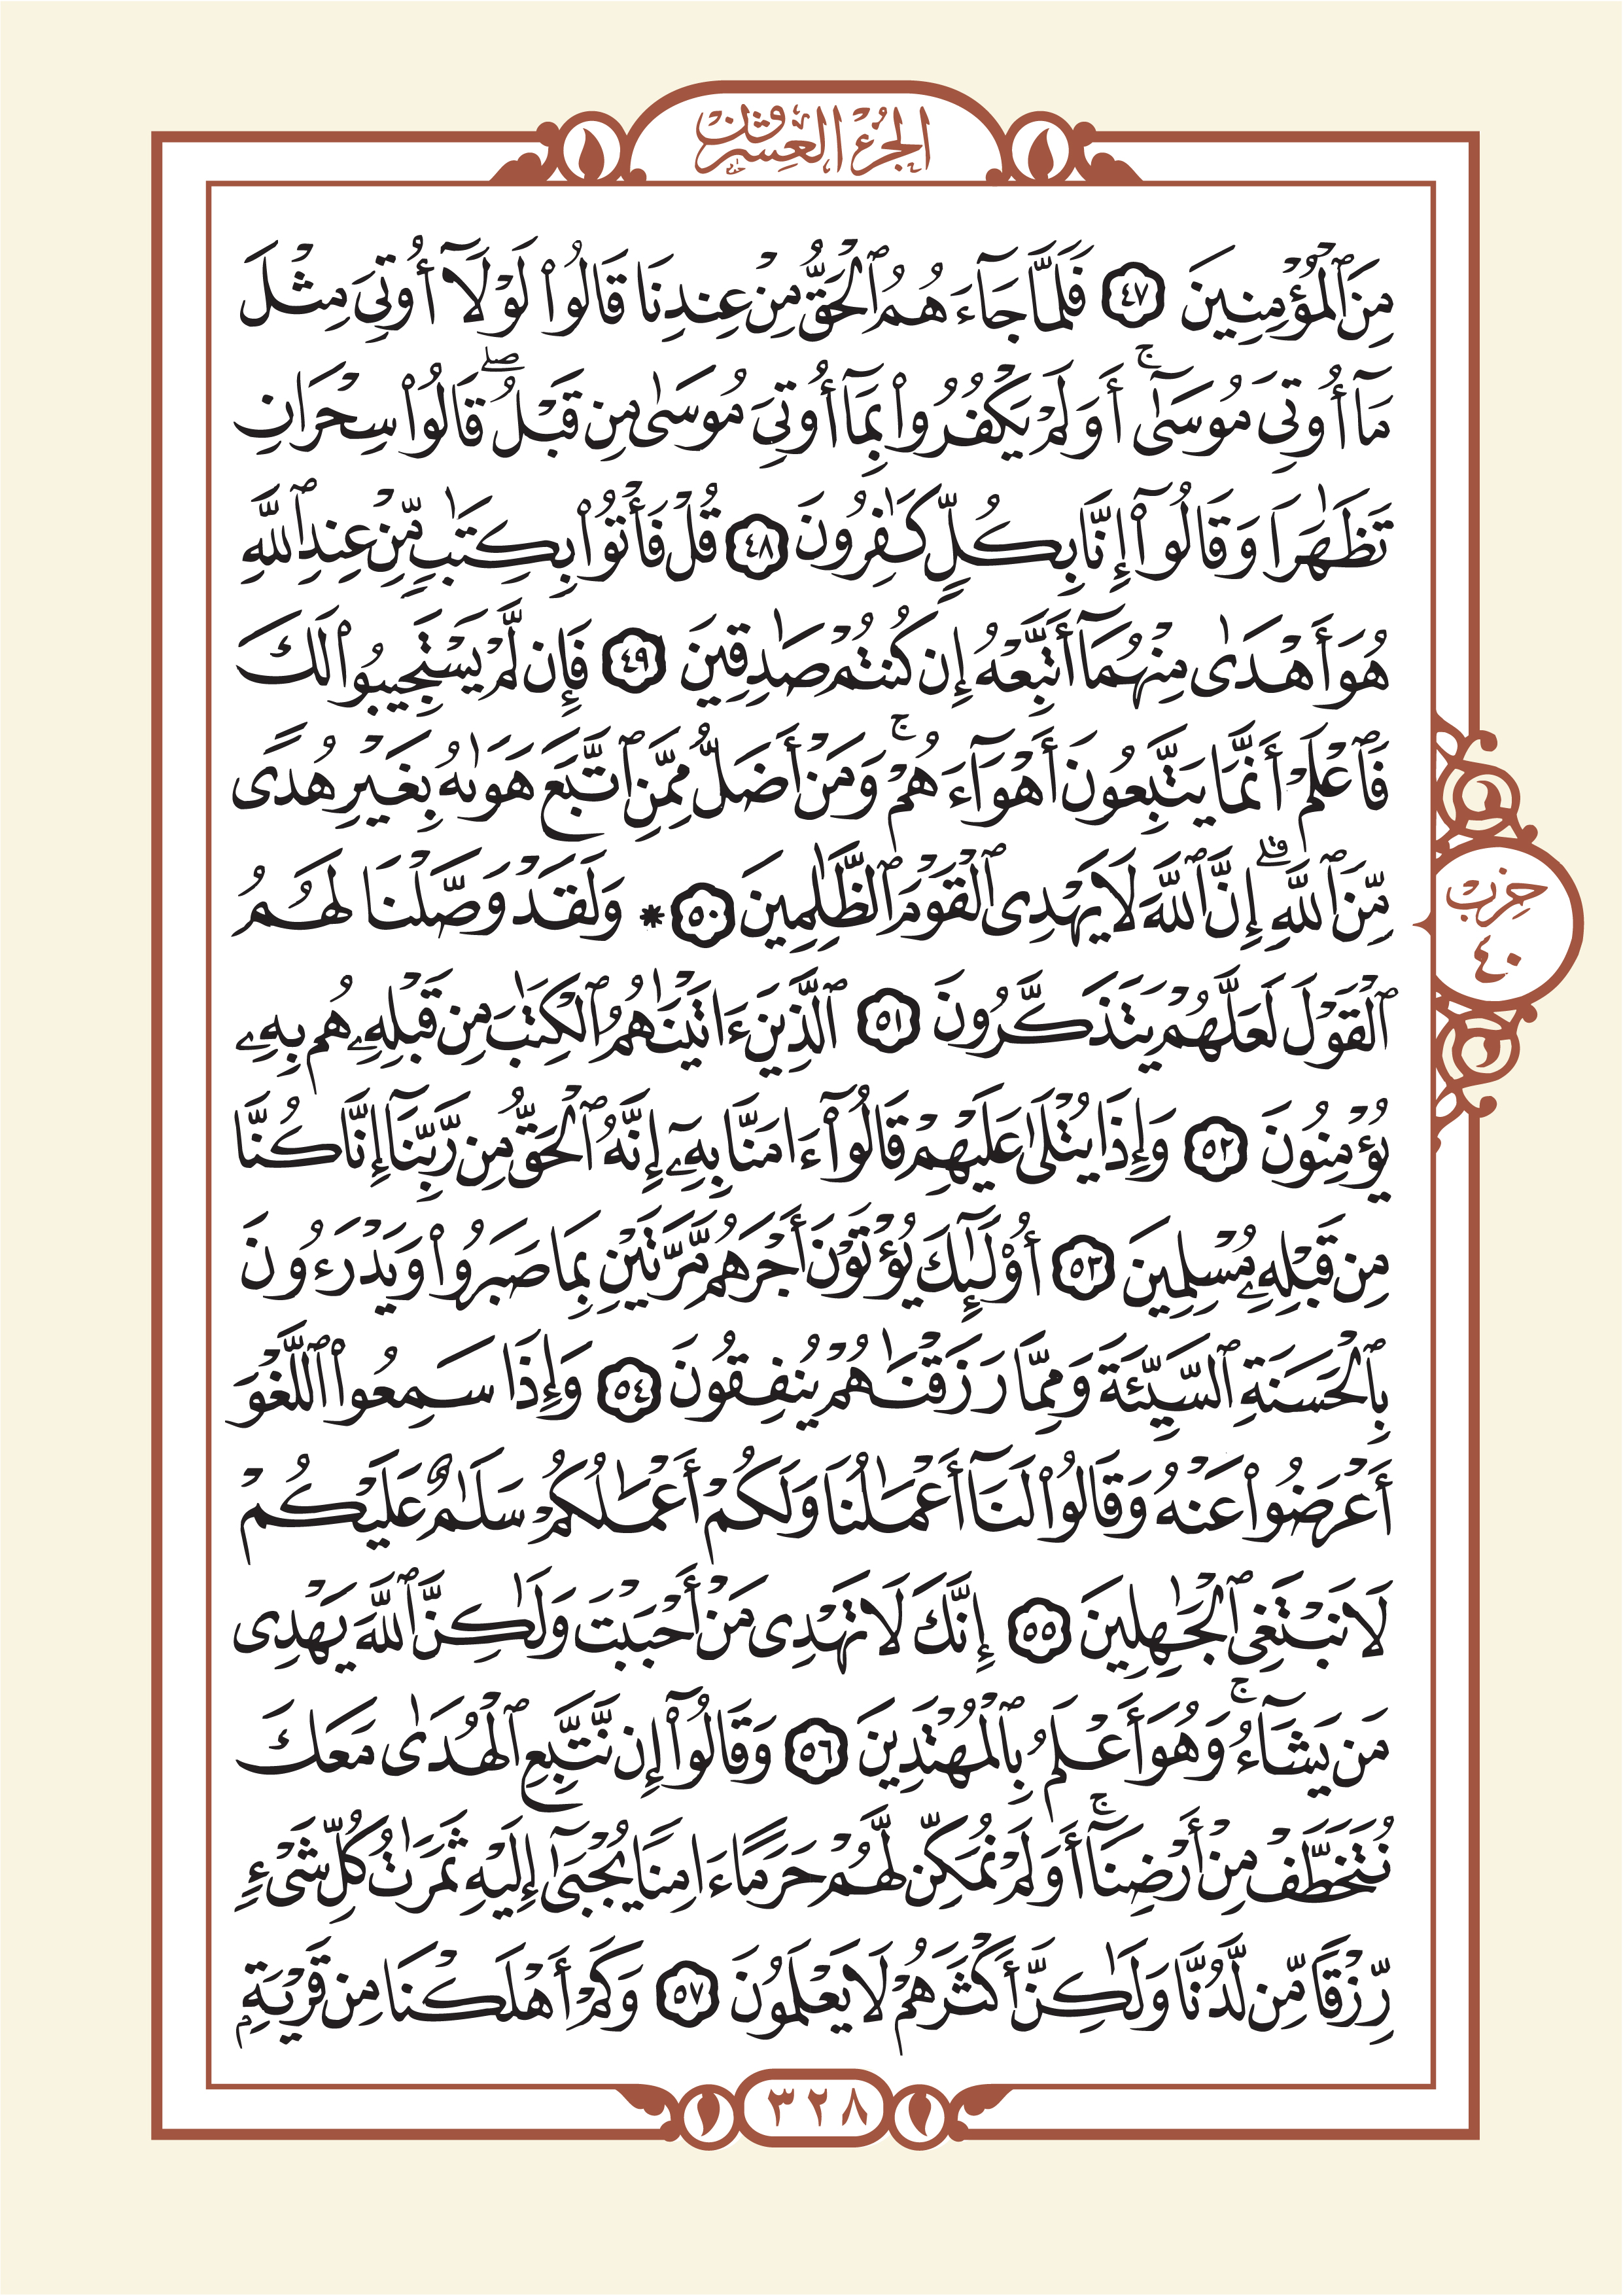 الجزء العشرون
مِنَ ٱلْمُؤْمِنِينَ ٤٧ فَلَمَّا جَآءَهُمُ ٱلْحَقُّ مِنْ عِندِنَا قَالُوا۟ لَوْلَآ أُوتِىَ مِثْلَ
مَآ أُوتِىَ مُوسَىٰٓ ۚ أَوَلَمْ يَكْفُرُوا۟ بِمَآ أُوتِىَ مُوسَىٰ مِن قَبْلُ ۖ قَالُوا۟ سِحْرَانِ
تَظَٰهَرَا وَقَالُوٓا۟ إِنَّا بِكُلٍّ كَٰفِرُونَ ٤٨ قُلْ فَأْتُوا۟ بِكِتَٰبٍ مِّنْ عِندِ ٱللَّهِ
هُوَ أَهْدَىٰ مِنْهُمَآ أَتَّبِعْهُ إِن كُنتُمْ صَٰدِقِينَ ٤٩ فَإِن لَّمْ يَسْتَجِيبُوا۟ لَكَ
فَٱعْلَمْ أَنَّمَا يَتَّبِعُونَ أَهْوَآءَهُمْ ۚ وَمَنْ أَضَلُّ مِمَّنِ ٱتَّبَعَ هَوَىٰهُ بِغَيْرِ هُدًى
مِّنَ ٱللَّهِ ۚ إِنَّ ٱللَّهَ لَا يَهْدِى ٱلْقَوْمَ ٱلظَّٰلِمِينَ ٥٠ * وَلَقَدْ وَصَّلْنَا لَهُمُ
ٱلْقَوْلَ لَعَلَّهُمْ يَتَذَكَّرُونَ ٥١ ٱلَّذِينَ ءَاتَيْنَٰهُمُ ٱلْكِتَٰبَ مِن قَبْلِهِۦ هُم بِهِۦ
يُؤْمِنُونَ ٥٢ وَإِذَا يُتْلَىٰ عَلَيْهِمْ قَالُوٓا۟ ءَامَنَّا بِهِۦٓ إِنَّهُ ٱلْحَقُّ مِن رَّبِّنَآ إِنَّا كُنَّا
مِن قَبْلِهِۦ مُسْلِمِينَ ٥٣ أُو۟لَٰٓئِكَ يُؤْتَوْنَ أَجْرَهُم مَّرَّتَيْنِ بِمَا صَبَرُوا۟ وَيَدْرَءُونَ
بِٱلْحَسَنَةِ ٱلسَّيِّئَةَ وَمِمَّا رَزَقْنَٰهُمْ يُنفِقُونَ ٥٤ وَإِذَا سَمِعُوا۟ ٱللَّغْوَ
أَعْرَضُوا۟ عَنْهُ وَقَالُوا۟ لَنَآ أَعْمَٰلُنَا وَلَكُمْ أَعْمَٰلُكُمْ سَلَٰمٌ عَلَيْكُمْ
لَا نَبْتَغِى ٱلْجَٰهِلِينَ ٥٥ إِنَّكَ لَا تَهْدِى مَنْ أَحْبَبْتَ وَلَٰكِنَّ ٱللَّهَ يَهْدِى
مَن يَشَآءُ ۚ وَهُوَ أَعْلَمُ بِٱلْمُهْتَدِينَ ٥٦ وَقَالُوٓا۟ إِن نَّتَّبِعِ ٱلْهُدَىٰ مَعَكَ
نُتَخَطَّفْ مِنْ أَرْضِنَآ ۚ أَوَلَمْ نُمَكِّن لَّهُمْ حَرَمًا ءَامِنًا يُجْبَىٰٓ إِلَيْهِ ثَمَرَٰتُ كُلِّ شَىْءٍ
رِّزْقًا مِّن لَّدُنَّا وَلَٰكِنَّ أَكْثَرَهُمْ لَا يَعْلَمُونَ ٥٧ وَكَمْ أَهْلَكْنَا مِن قَرْيَةٍۭ
حزب
٤٠
٣٢٨